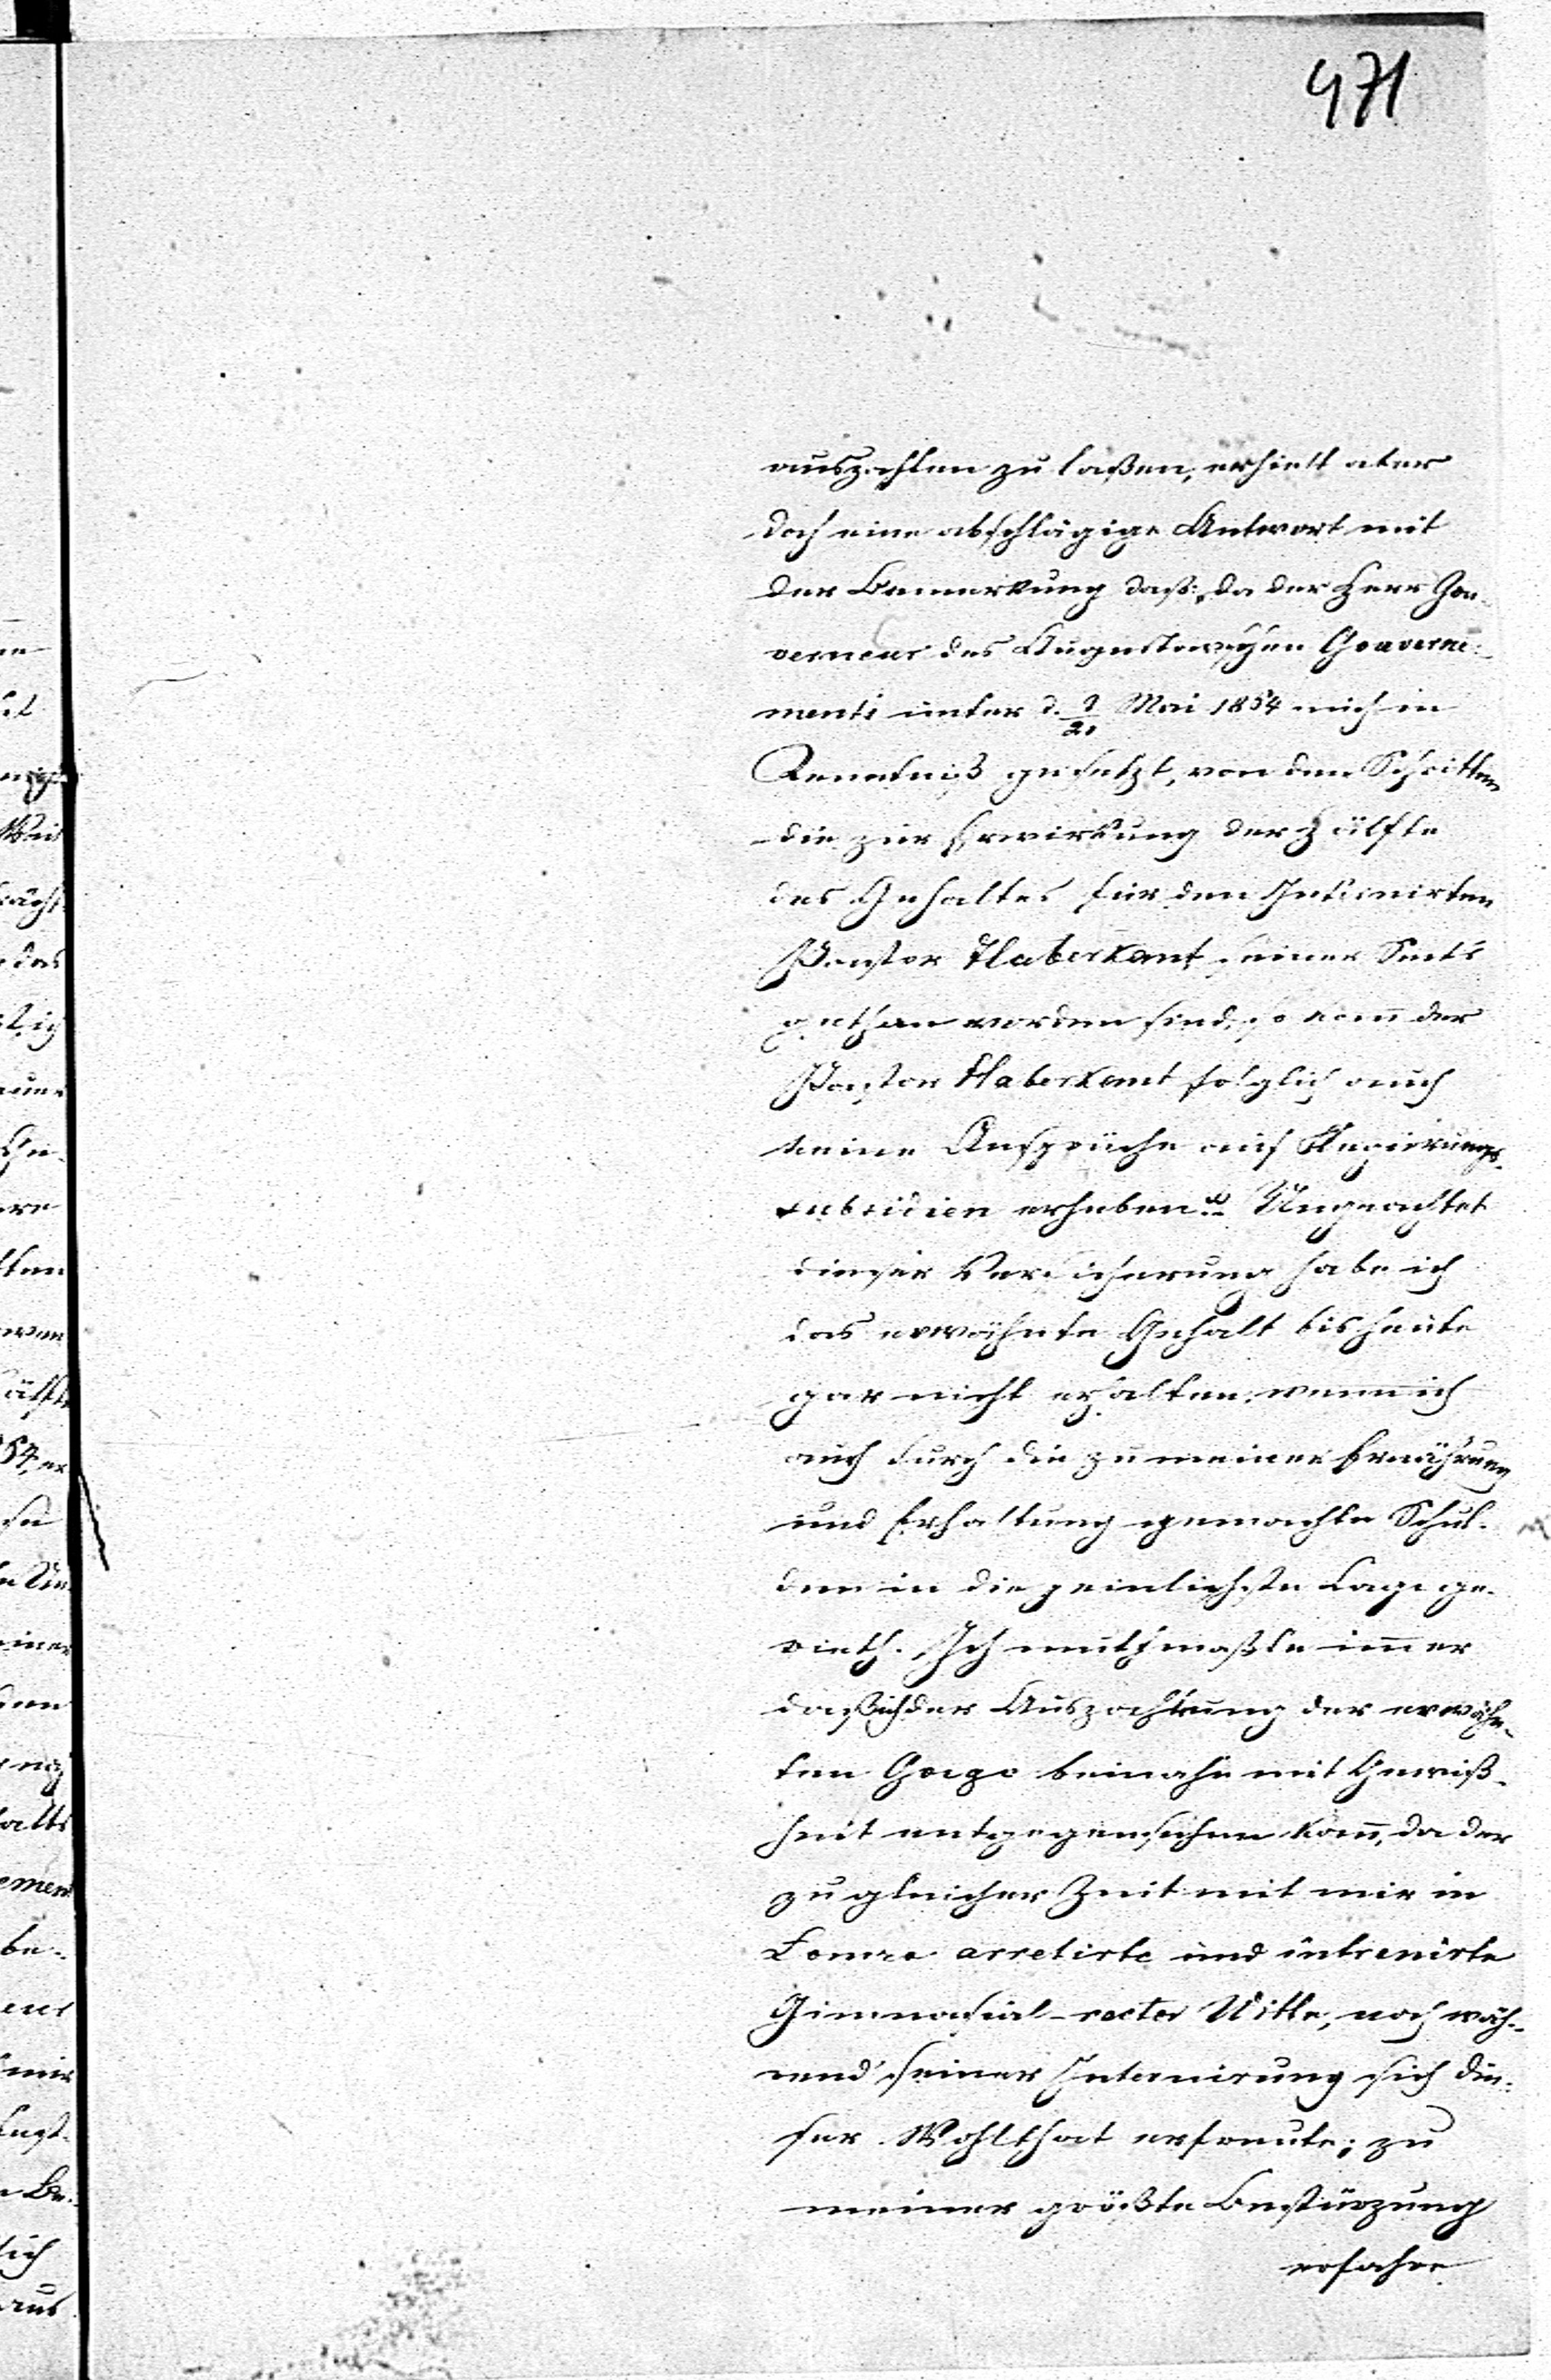 471
auszahlen zu laßen, erhielt aber
doch eine abschlägige Antwort mit
der Bemerkung daß: „da der Herr Gou-
verneur des Augustowschen Gouverne-
ments unter d. 9/21 Mai 1854 mich in
Kenntniß gesetzt, von den Schritten
die zur Erwirkung der Hälfte
des Gehaltes für den Internirten
Pastor Haberkant seiner Seits
gethan worden sind, so kann der
Pastor Haberkant folglich auch
keine Ansprüche auf Regierungs-
subsidien erheben“. Ungeachtet
dieser Versicherung habe ich
das erwähnte Gehalt bis heute
gar nicht erhalten, wenn ich
auch durch die zu meiner Ernährung
und Erhaltung gemachte Schul-
den in die peinlichste Lage ge-
rieth. Ich muthmaßte immer
daß ich der Auszahlung der erwähn-
ten Gage beinahe mit Gewiß-
heit entgegensehen kann, da der
zu gleicher Zeit mit mir in
Lomza arretirte und intrenirte
Gimnasial-rector Witte, noch wäh-
rend seiner Internirung sich die-
ser Wohlthat erfreute; zu
meiner größte Bestürzung
erfahre